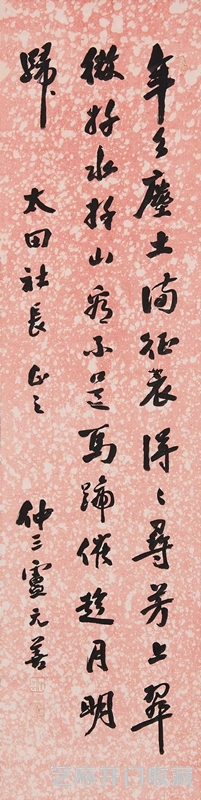 年々塵土滿征裳得々尋芳上翠
微好水好山看不足馬蹄催趁月明
歸 太田社長正之 仲三盧元善